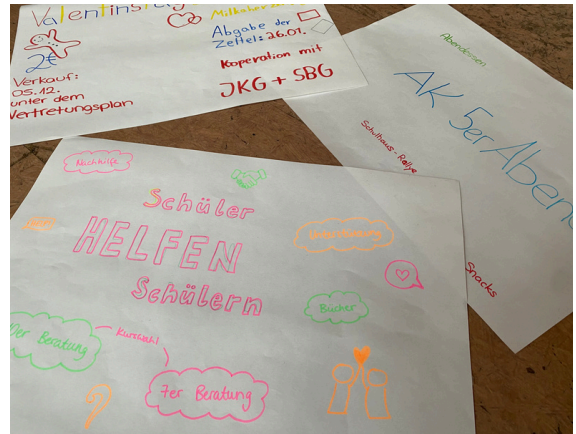 Valentinstag
2€
Verkauf:
05.12.
unter dem
Vertretungsplan
Abgabe der
Zettel: 26.01.
Kooperation mit
JKG + SBG
Abendessen
AK 5er Abend
Schulhaus-Rallye
Snacks
Nachhilfe
Schüler
HELFEN
Schülern
Unterstützung
Bücher
Kurswahl
10er Beratung
7er Beratung